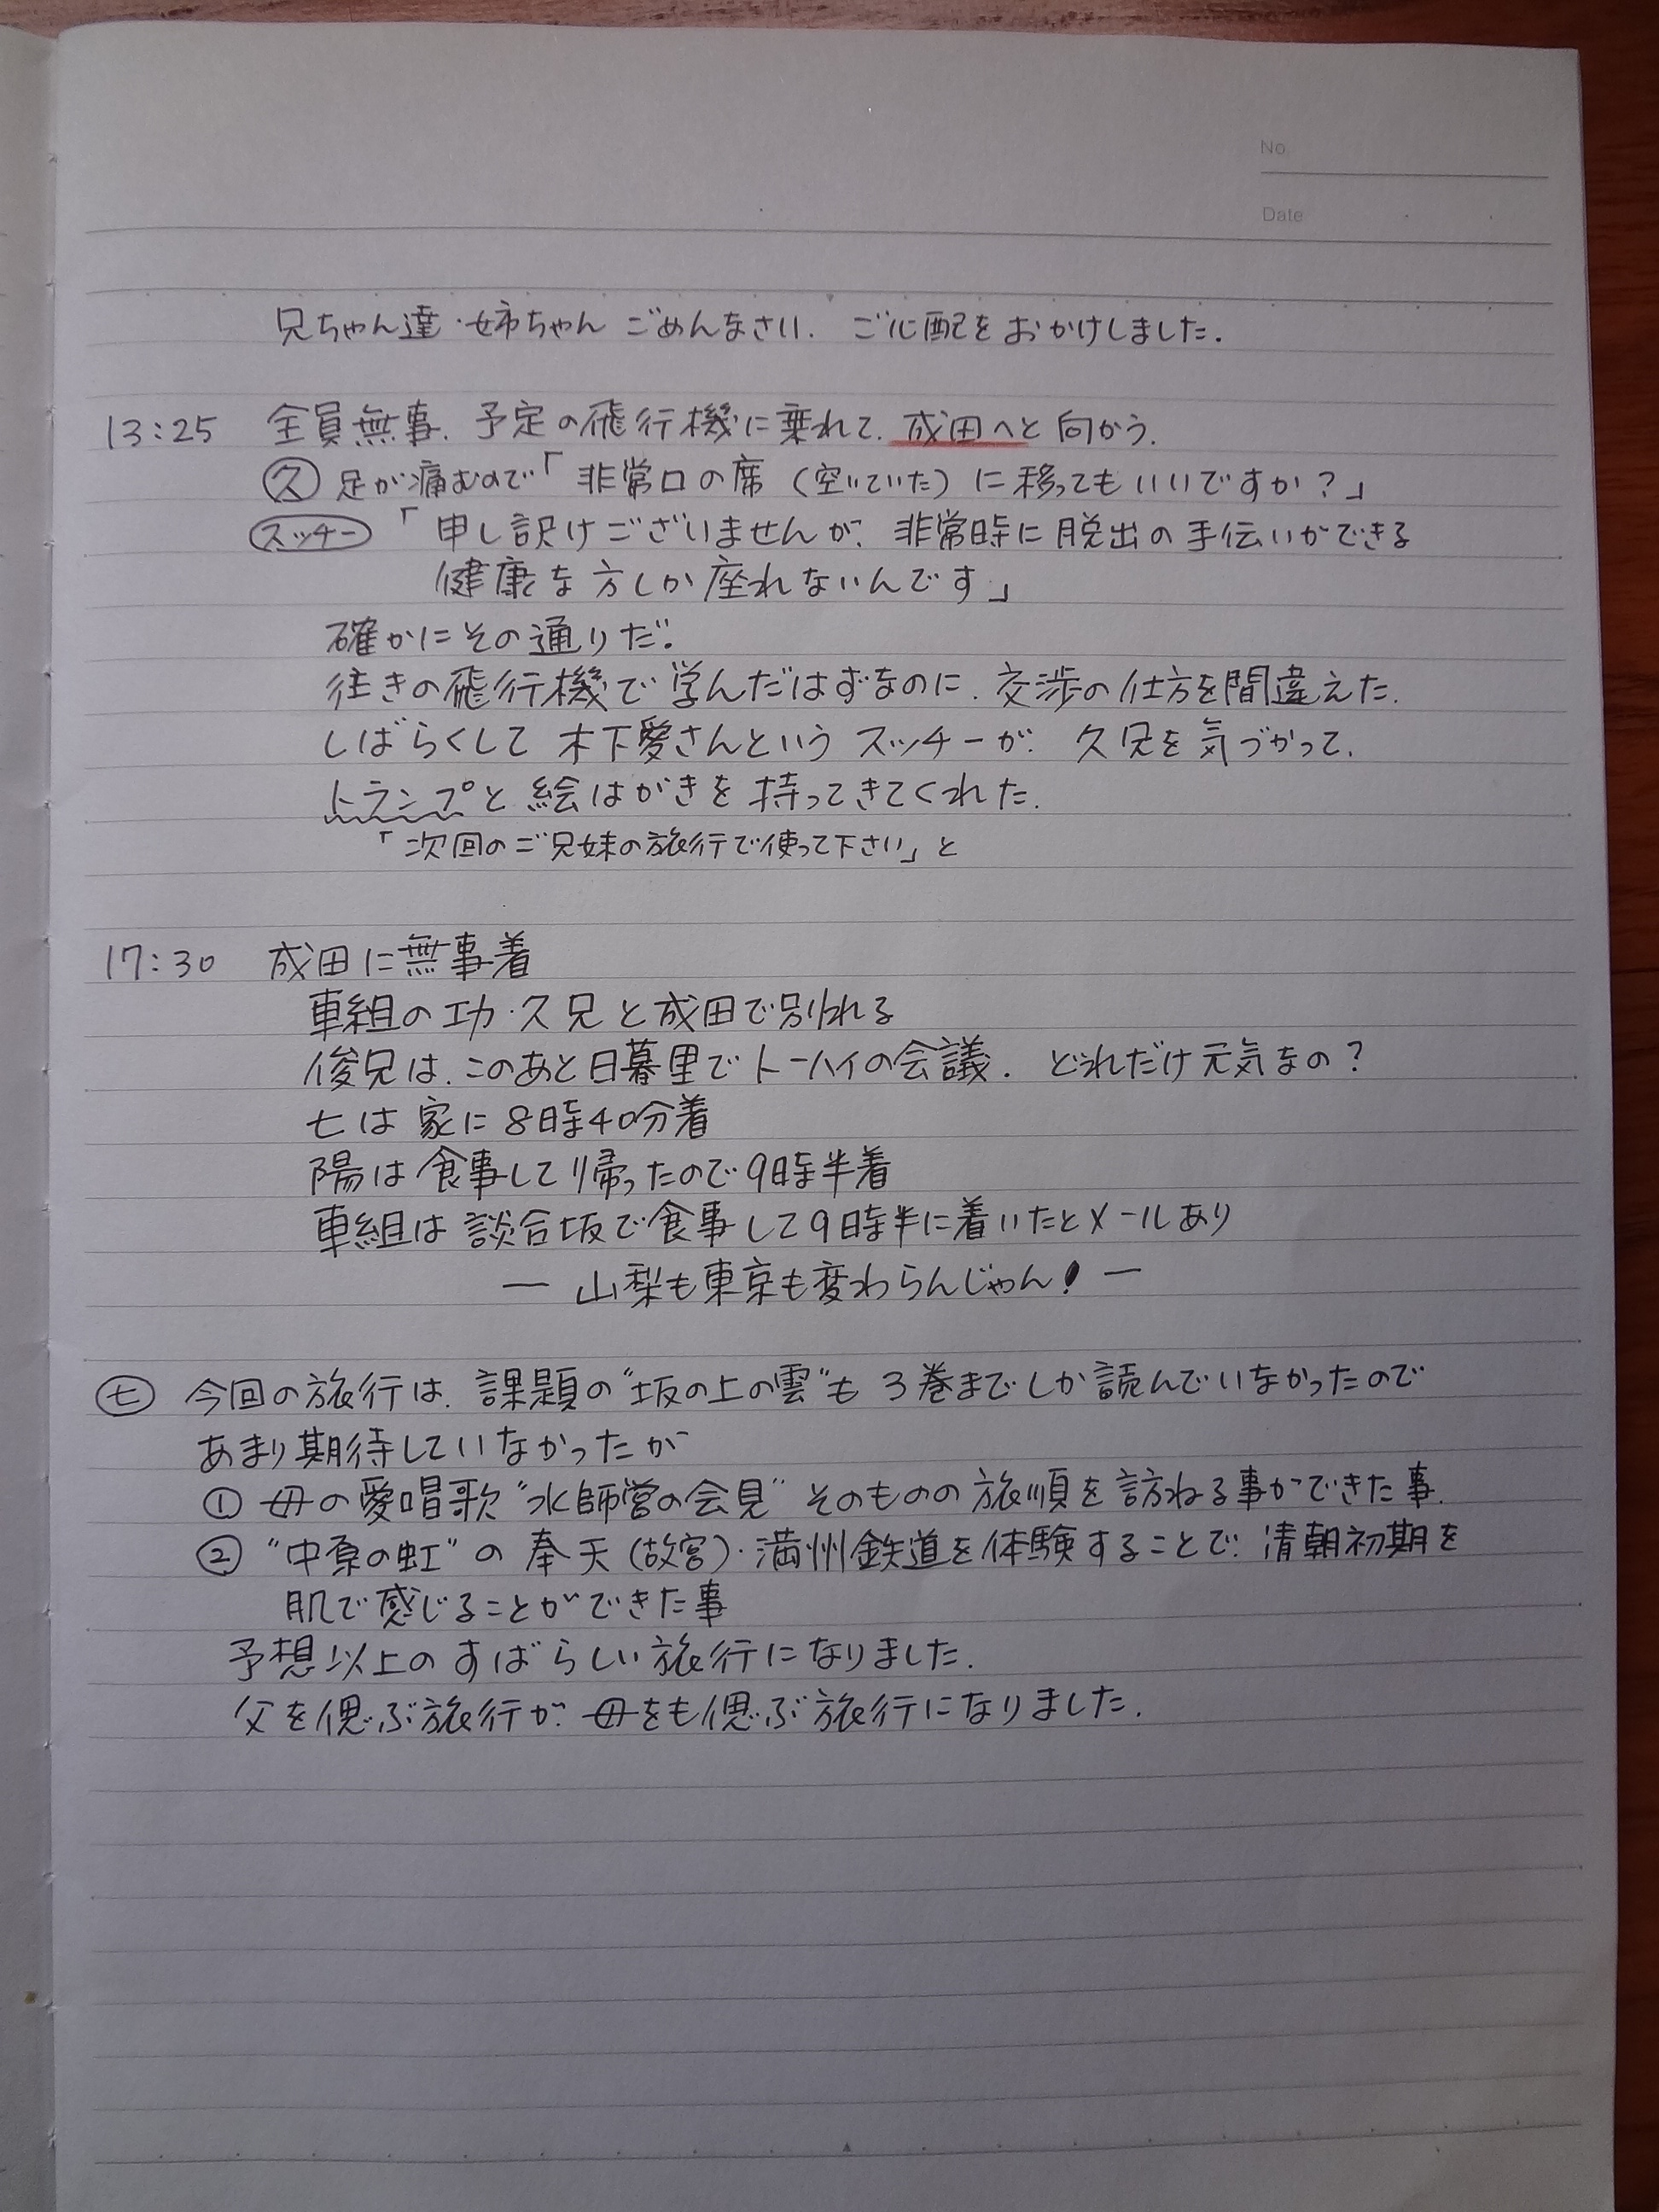 No.
Date
兄ちゃん達・姉ちゃん ごめんなさい. ご心配をおかけしました.
13:25 全員無事. 予定の飛行機に乗れて. 成田へと向かう.
久 足が痛むので「非常口の席(空いていた)に移ってもいいですか?」
スッチー 「申し訳けございませんが. 非常時に脱出の手伝いができる
健康な方しか座れないんです」
確かにその通りだ.
往きの飛行機で学んだはずなのに. 交渉の仕方を間違えた.
しばらくして 木下愛さんという スッチーが. 久兄を気づかって.
トランプと絵はがきを持ってきてくれた.
「次回のご兄妹の旅行で使って下さい」と
17:30 成田に無事着
車組の功・久兄と成田で別れる
俊兄は. このあと日暮里でトーハイの会議. どれだけ元気なの?
七は 家に8時40分着
陽は食事して帰ったので9時半着
車組は 談合坂で食事して9時半に着いたとメールあり
― 山梨も東京も変わらんじゃん! ―
七 今回の旅行は. 課題の"坂の上の雲"も 3巻までしか読んでいなかったので
あまり期待していなかったが
① 母の愛唱歌"水師営の会見" そのものの旅順を訪ねる事ができた事.
② "中原の虹"の 奉天(故宮)・満州鉄道を体験することで. 清朝初期を
肌で感じることができた事
予想以上のすばらしい旅行になりました.
父を偲ぶ旅行が. 母をも偲ぶ旅行になりました.